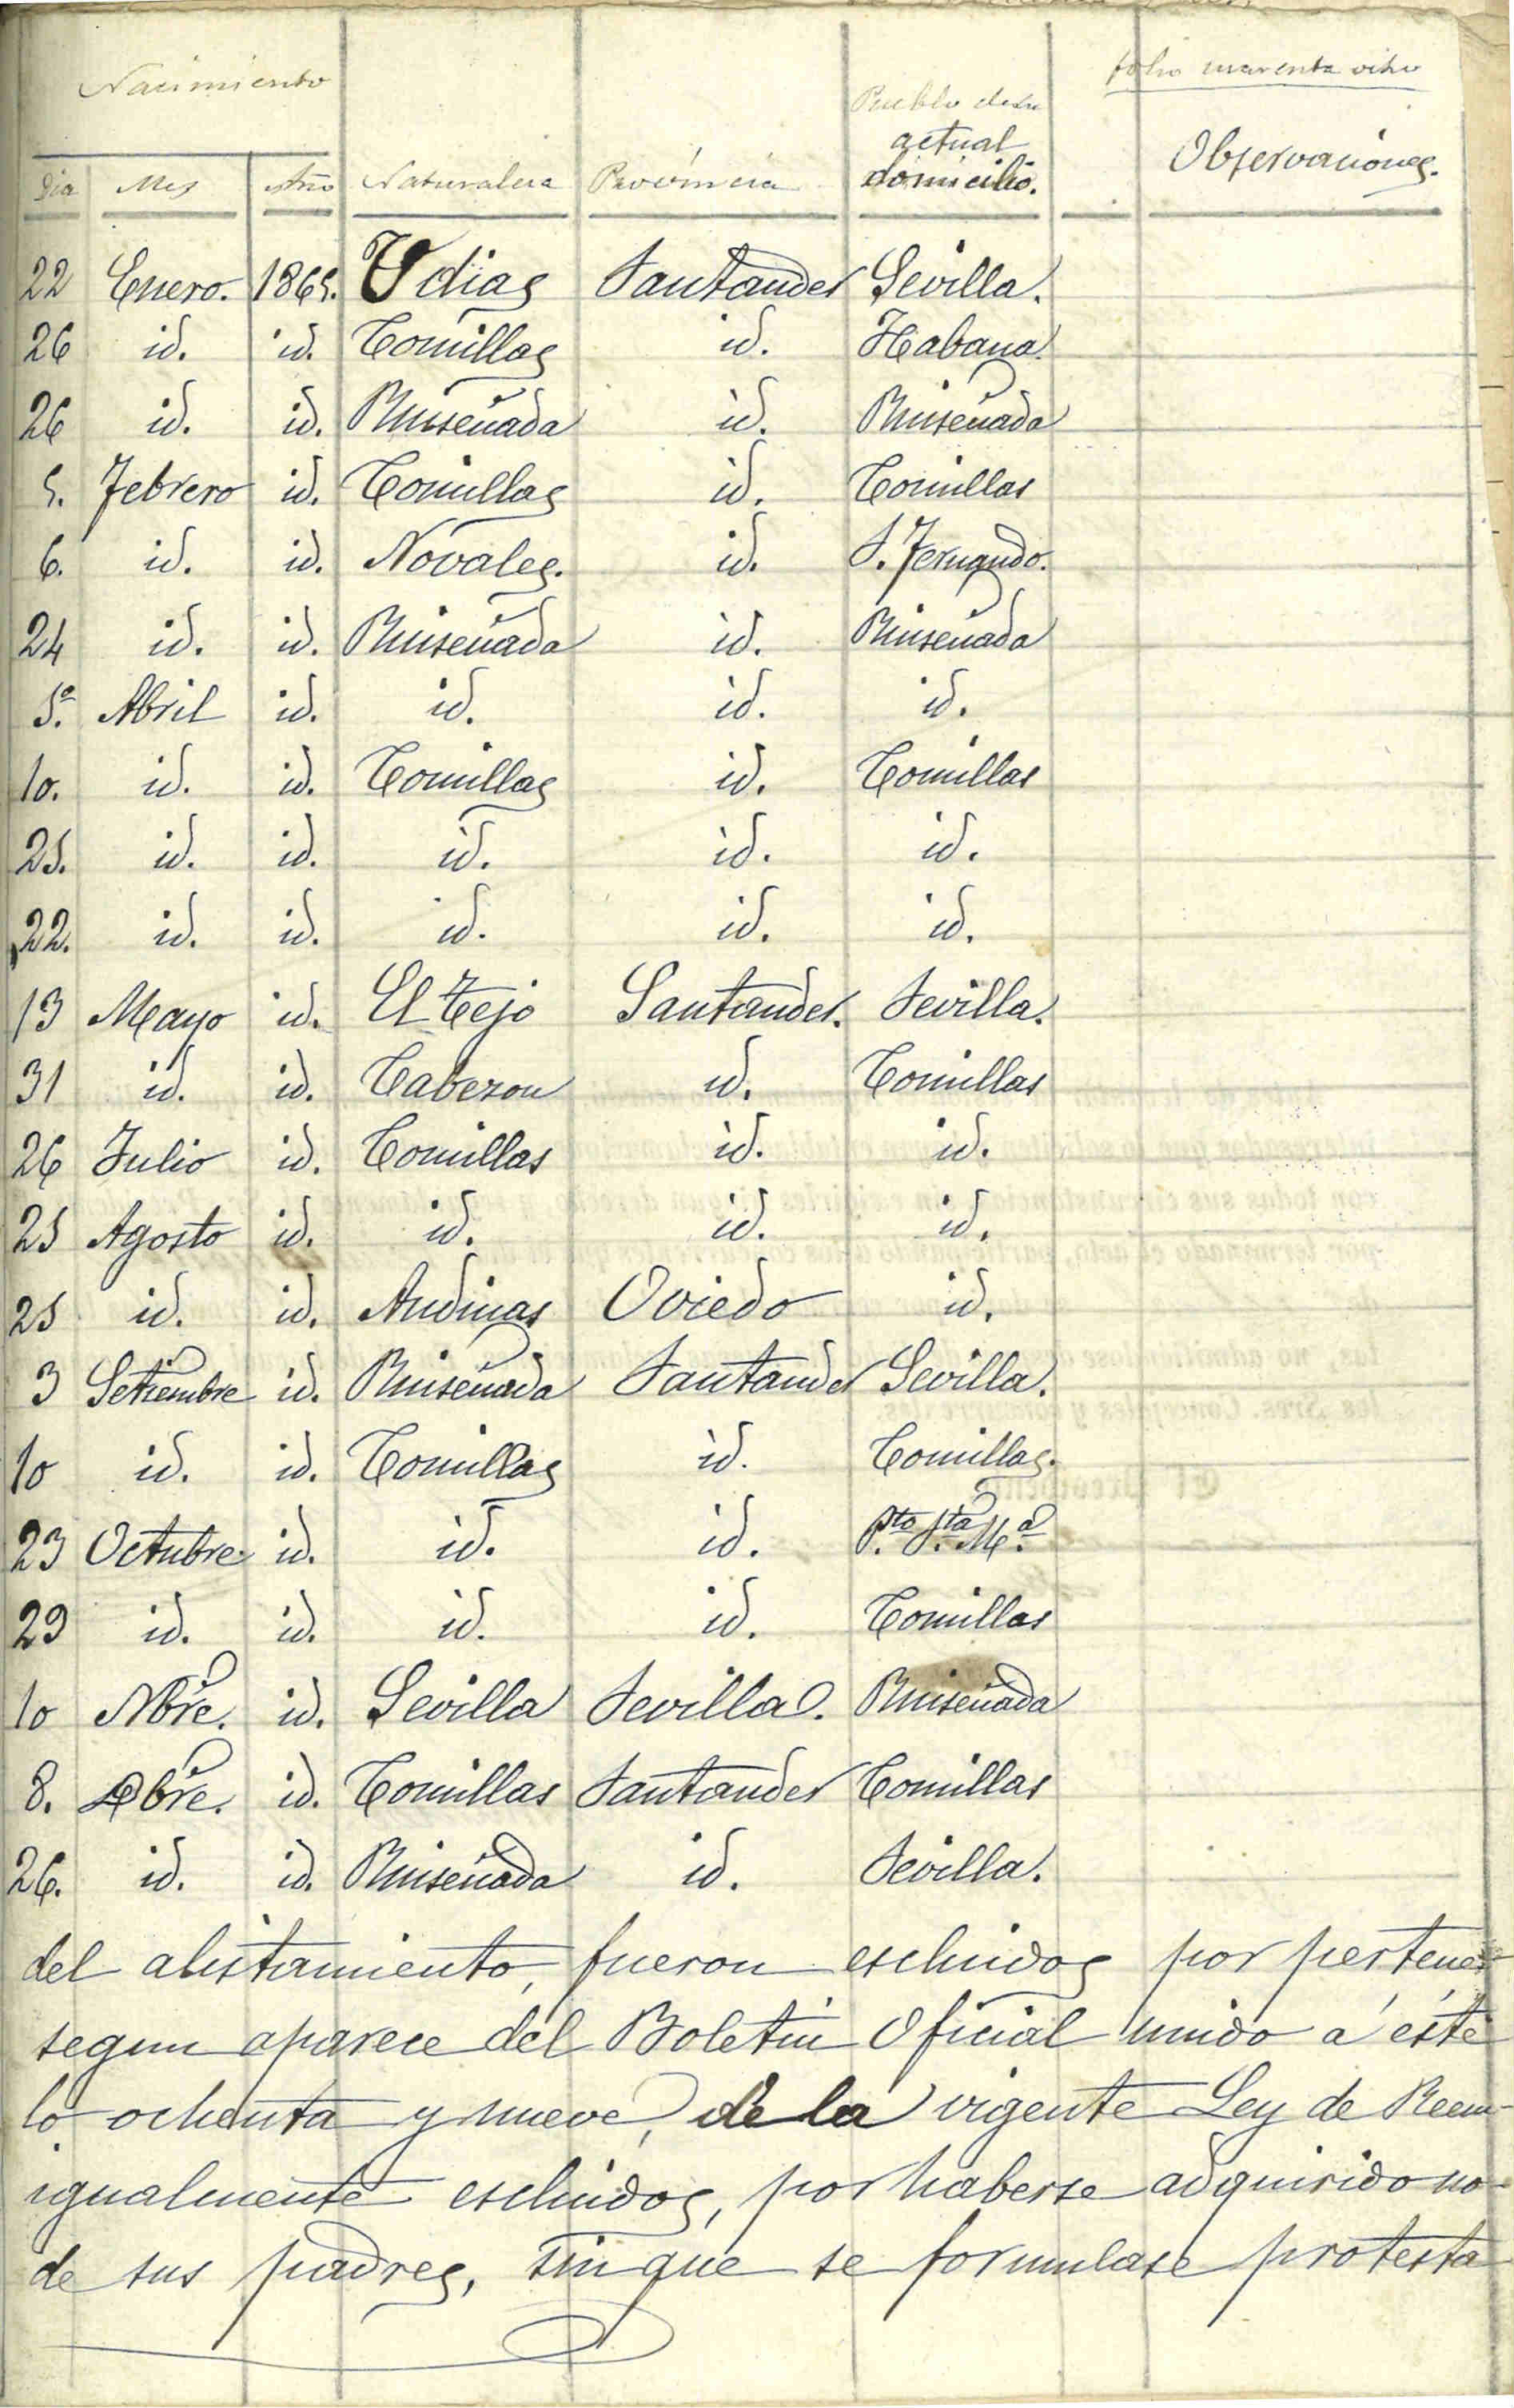 folio cuarenta ocho
Nacimiento
Pueblo de su
actual
domicilio.
Observaciones.
Dia Mes Año Naturaleza Provincia
22 Enero. 1865. Udias Santander Sevilla.
26 id. id. Comillas id. Habana.
26 id. id. Ruiseñada id. Ruiseñada
5. Febrero id. Comillas id. Comillas
6. id. id. Novales. id. S. Fernando.
24 id. id. Ruiseñada id. Ruiseñada
5. Abril id. id. id. id.
10. id. id. Comillas id. Comillas
25. id. id. id. id. id.
22. id. id. id. id. id.
13 Mayo id. El Tejo Santander. Sevilla.
31 id. id. Cabezon id. Comillas
26 Julio id. Comillas id. id.
25 Agosto id. id. id. id.
25 id. id. Andinas Oviedo id.
3 Setiembre id. Ruiseñada Santander Sevilla.
10 id. id. Comillas id. Comillas.
23 Octubre id. id. id. Pto. Sta. Ma.
29 id. id. id. id. Comillas
10 Nbre. id. Sevilla Sevilla. Ruiseñada
8. Dbre. id. Comillas Santander Comillas
26. id. id. Ruiseñada id. Sevilla.
del alistamiento, fueron escluidos por pertene-
segun aparece del Boletin Oficial unido á éste
lo ochenta y nueve, de la vigente Ley de Reem-
igualmente escluidos, por haberse adquirido no-
de sus padres, sin que se formulase protesta